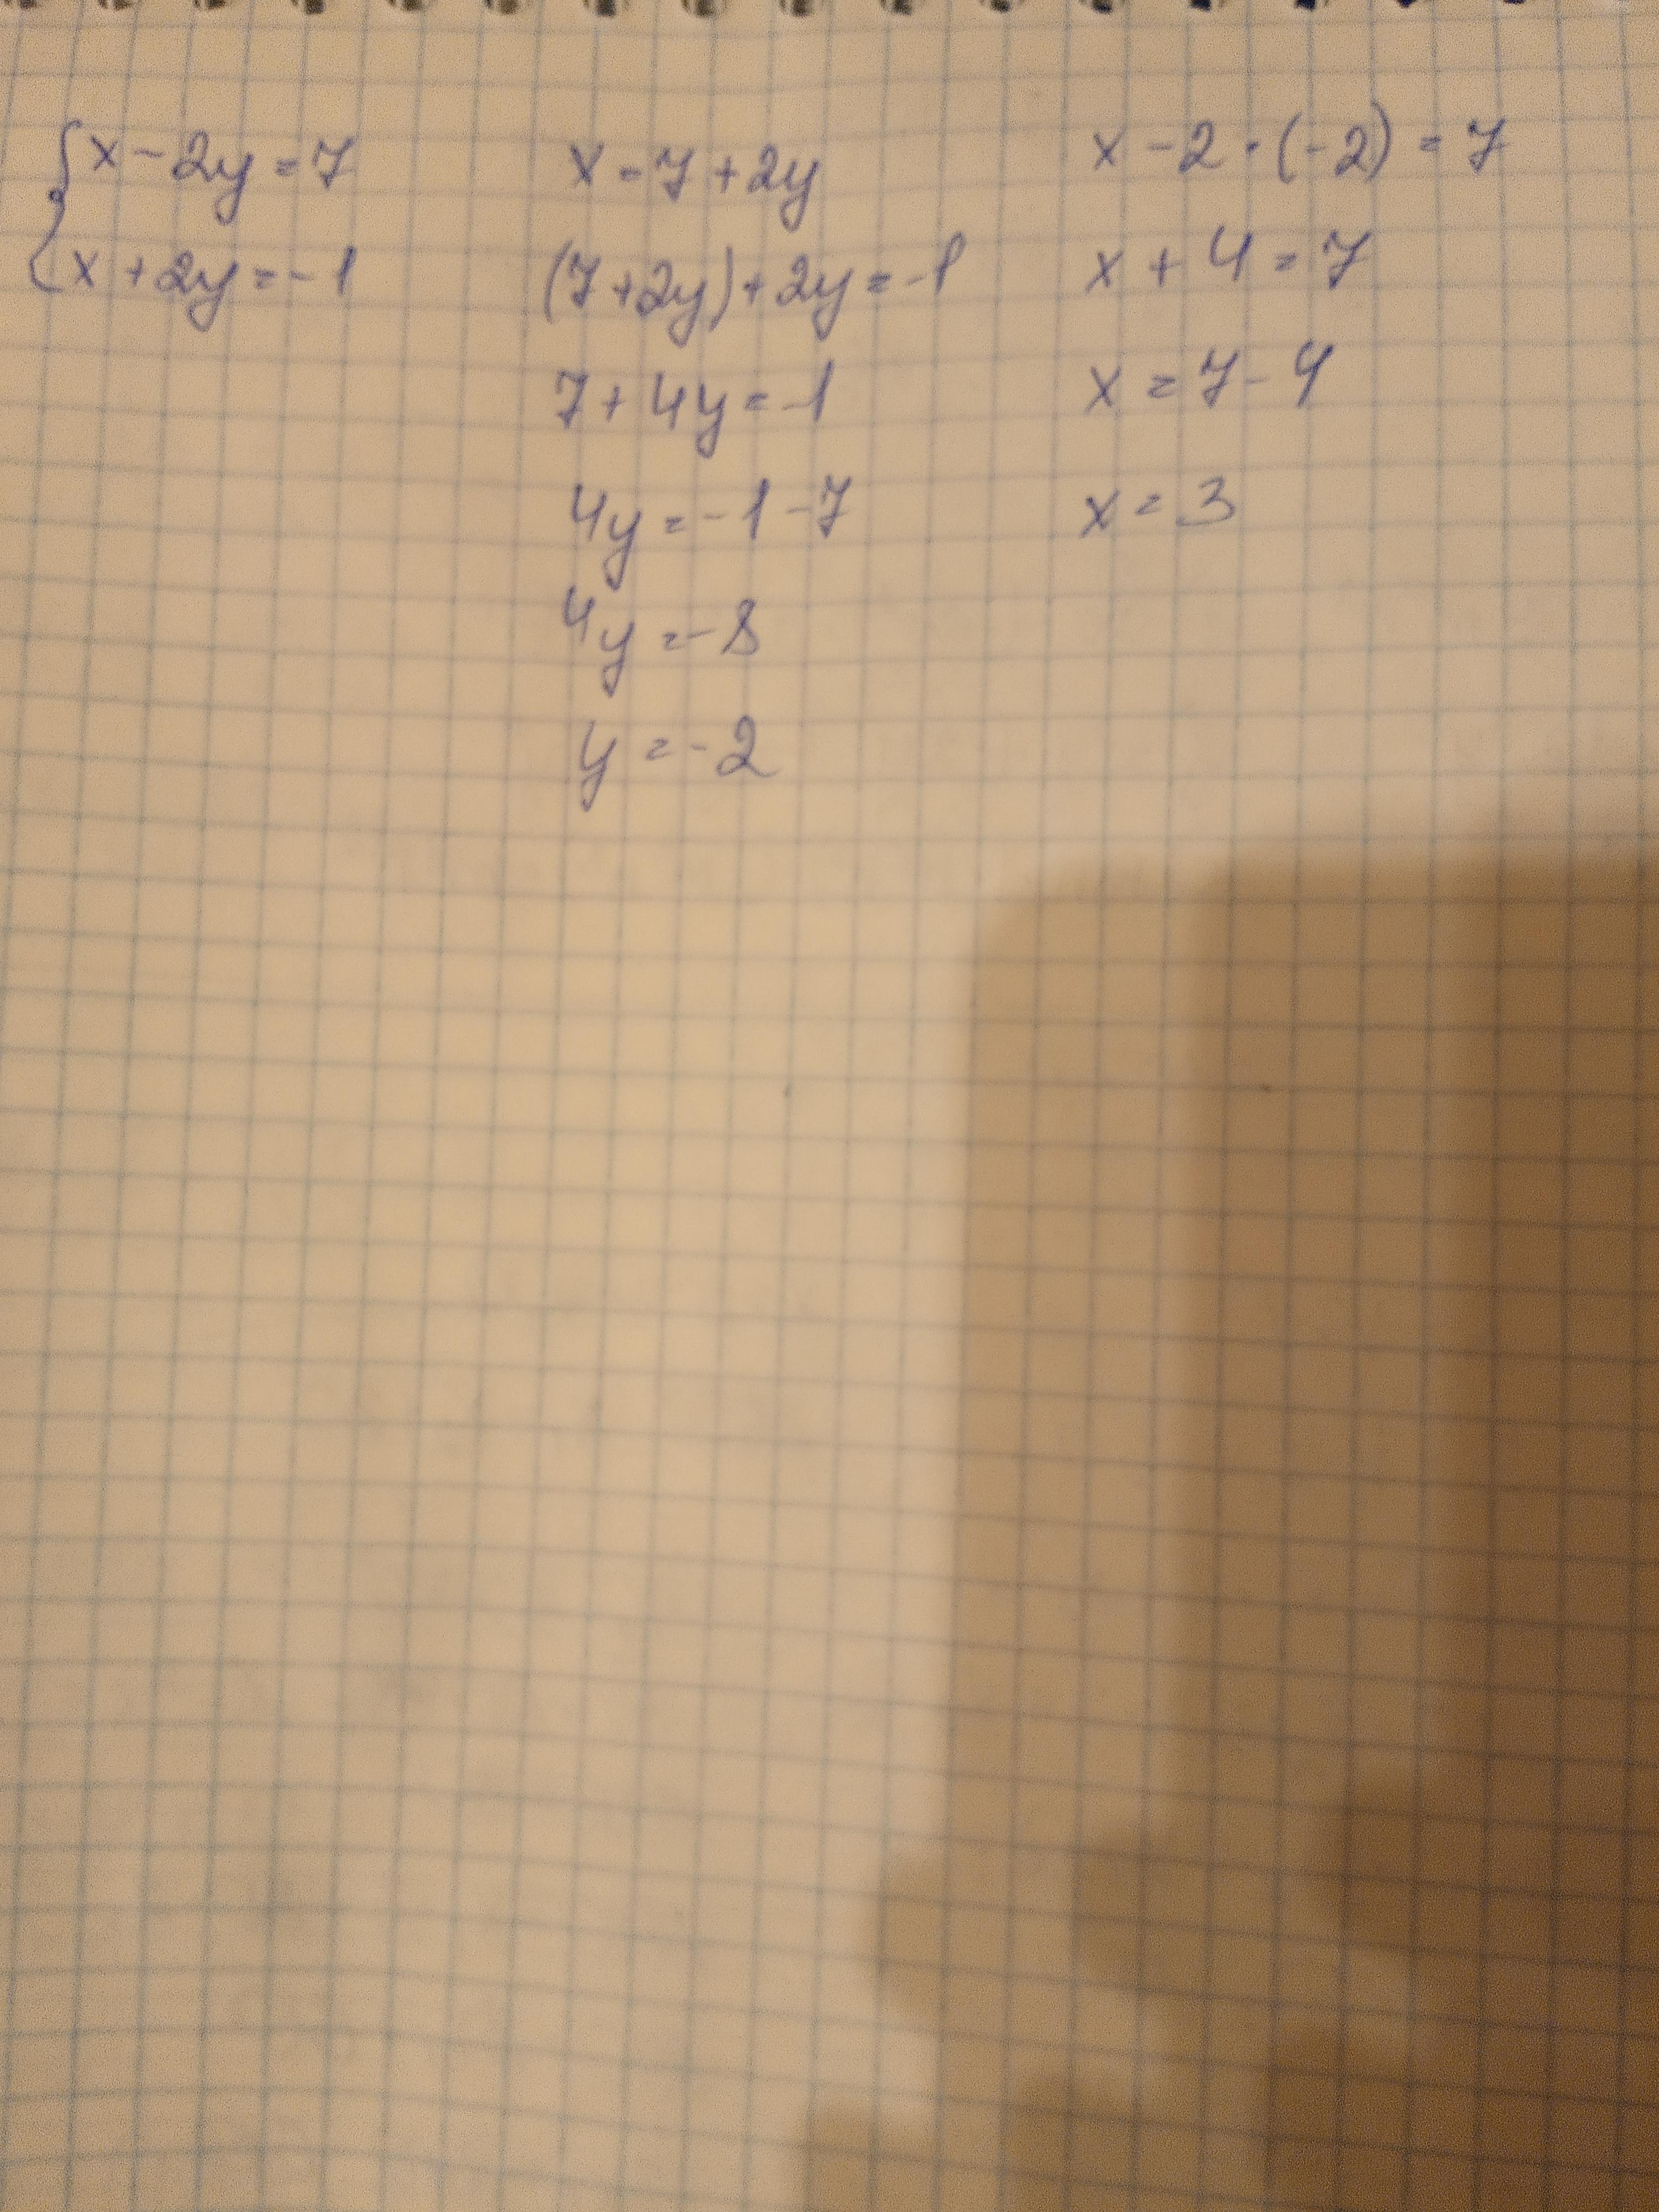 x - 2y = 7
x + 2y = -1
x = 7 + 2y
(7 + 2y) + 2y = -1
7 + 4y = -1
4y = -1 - 7
4y = -8
y = -2
x - 2 · (-2) = 7
x + 4 = 7
x = 7 - 4
x = 3